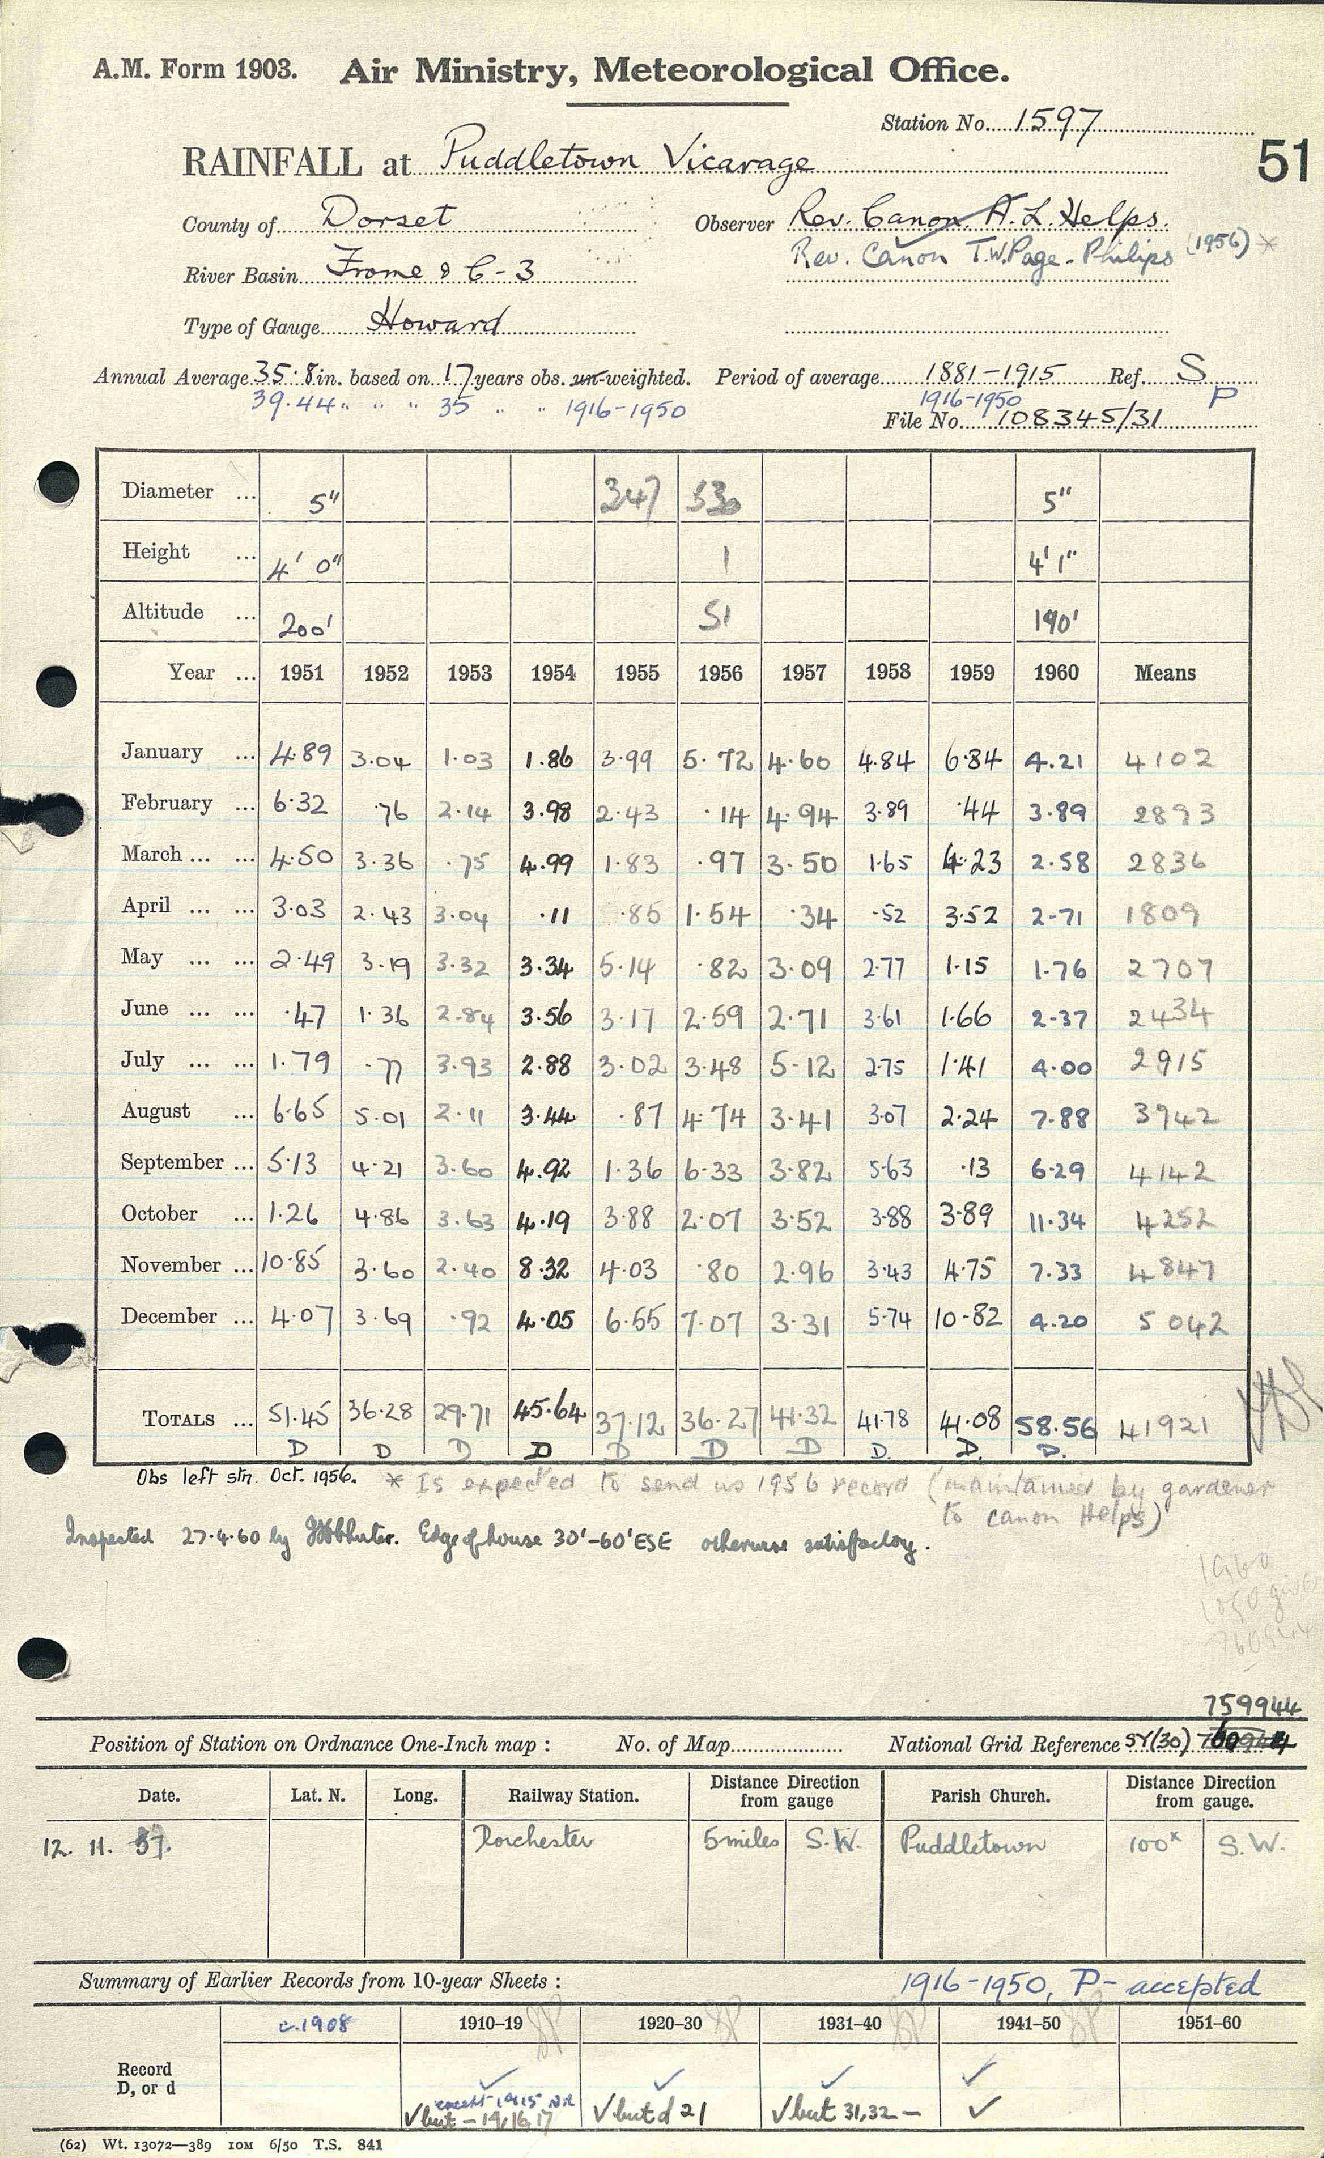 A.M. Form 1903. Air Ministry, Meteorological Office.
Station No. 1597
51
RAINFALL at Puddletown Vicarage
County of Dorset Observer Rev. Canon A. L. Helps.
Rev. Canon T.W. Page-Philips (1956) *
River Basin Frome & C-3
Type of Gauge Howard
Annual Average 35.8 in. based on 17 years obs. un-weighted. Period of average 1881-1915 Ref. S
39.44 " " " 35 " " 1916-1950 1916-1950 P
File No. 108345/31
Diameter ... 5" 347 530 5"
Height ... 4' 0" 1 4' 1"
Altitude ... 200' 51 190'
Year ... 1951 1952 1953 1954 1955 1956 1957 1958 1959 1960 Means
January ... 4.89 3.04 1.03 1.86 3.99 5.72 4.60 4.84 6.84 4.21 4102
February ... 6.32 .76 2.14 3.98 2.43 .14 4.94 3.89 .44 3.89 2893
March ... ... 4.50 3.36 .75 4.99 1.83 .97 3.50 1.65 4.23 2.58 2836
April ... ... 3.03 2.43 3.04 .11 .85 1.54 .34 .52 3.52 2.71 1809
May ... ... 2.49 3.19 3.32 3.34 5.14 .82 3.09 2.77 1.15 1.76 2707
June ... ... .47 1.36 2.84 3.56 3.17 2.59 2.71 3.61 1.66 2.37 2434
July ... ... 1.79 .77 3.93 2.88 3.02 3.48 5.12 2.75 1.41 4.00 2915
August ... 6.65 5.01 2.11 3.44 .87 4.74 3.41 3.07 2.24 7.88 3942
September ... 5.13 4.21 3.60 4.92 1.36 6.33 3.82 5.63 .13 6.29 4142
October ... 1.26 4.86 3.63 4.19 3.88 2.07 3.52 3.88 3.89 11.34 4252
November ... 10.85 3.60 2.40 8.32 4.03 .80 2.96 3.43 4.75 7.33 4847
December ... 4.07 3.69 .92 4.05 6.55 7.07 3.31 5.74 10.82 4.20 5042
TOTALS ... 51.45 36.28 29.71 45.64 37.12 36.27 41.32 41.78 41.08 58.56 41921
D D D D D D D D. D. D.
Obs left stn. Oct. 1956. * Is expected to send us 1956 record (maintained by gardener
to Canon Helps)
Inspected 27.4.60 by Edge of house 30'-60' ESE otherwise satisfactory.
1960
759944
Position of Station on Ordnance One-Inch map : No. of Map National Grid Reference SY(30)
Date. Lat. N. Long. Railway Station. Distance Direction from gauge Parish Church. Distance Direction from gauge.
12. 11. 57. Dorchester 5 miles S.W. Puddletown 100x S.W.
Summary of Earlier Records from 10-year Sheets : 1916-1950, P- accepted
c.1908 1910–19 1920–30 1931–40 1941–50 1951–60
Record
D, or d
✓ ✓ ✓ ✓
except 1915
✓ but - 14,16,17 ✓ but d 21 ✓ but 31,32 - ✓
(62) Wt. 13072—389 10M 6/50 T.S. 841